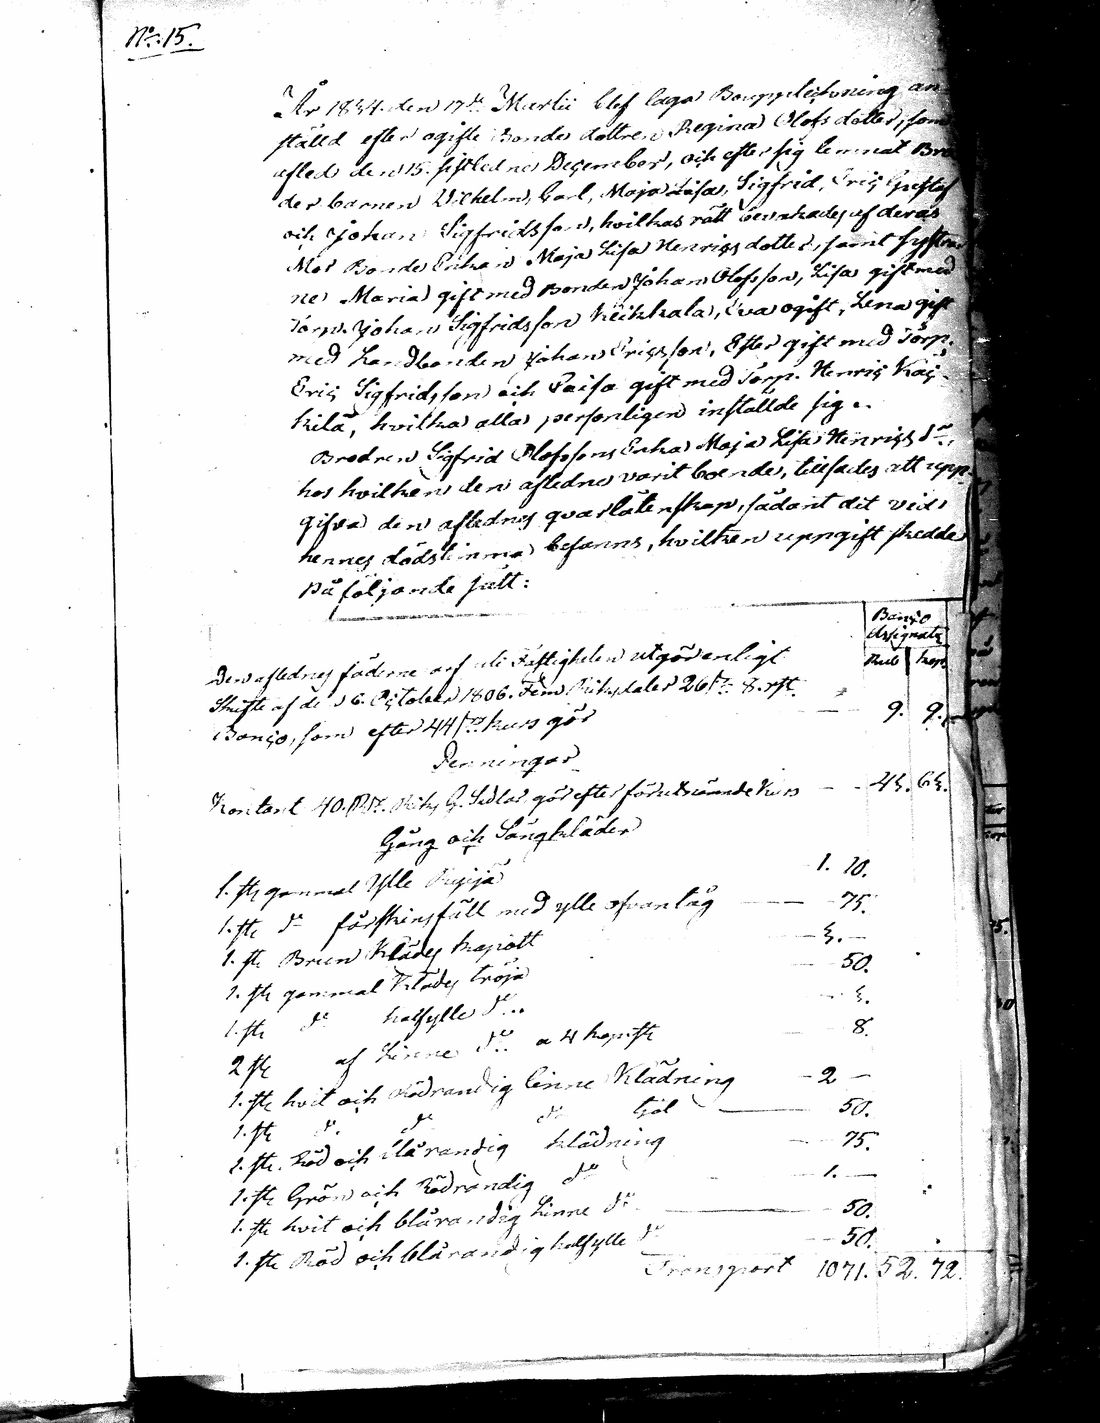 No: 15.
År 1834. den 17de Martii blef laga Bouppteckning an
ställd efter ogifte Bonde dottren Regina Olofs dotter, som
afled den 15. sistledne December, och efter sig lemnat Bro
der barnen Wilhelm, Carl, Maja Lisa, Sigfrid, Eric Gustaf
och Johan Sigfridsson, hvilkas rätt bevakades af deras
Mor Bonde Enkan Maja Lisa Henrics dotter, samt systrar
ne Maria gift med Bonden Johan Olofsson, Lisa gift med
Torp. Johan Sigfridsson Keikkala, Eva ogift, Lena gift
med Landbonden Johan Ericsson, Ester gift med Torp.
Eric Sigfridsson och Caisa gift med Torp. Henric
kilä, hvilka alla personligen inställde sig.
Brodren Sigfrid Olofssons Enka Maja Lisa Henrics dr.
hos hvilken den aflidne varit boende, tillsades att upp-
gifva den aflednes qvarlåtenskap, sådant det vid
hennes dödstimma befanns, hvilken uppgift skedde
På följande sätt:
Banco
Assignats
Rub kop
Den aflednes fäderne arf uti Fastigheten utgör enligt
Skifte af den 6. October 1806. Fem Riksdaler 26 s. 8. rst.
Banco, som efter 44 s. kurs gör 9. 9.
Penningar
Kontant 40. Rd. Riks G. Sedlar gör efter förutnämnde kurs 43. 63.
Gång och Sängkläder
1. st. gammal Ylle 1. 10.
1. st. do fårskinsfäll med ylle ofvantåg 75.
1. st. Brun Klädes kapott 3. —
1. st. gammal Klädes tröja 50.
1. st. do halfylle do 3.
2 st. af Linne do a 4 kop. st. 8.
1. st. hvit och Rödrandig linne Klädning 2 —
1. st. do do do kjol 50.
1. st. Röd och blårandig klädning 75.
1. st. Grön och Rödrandig do 1. —
1. st. hvit och blårandig Linne do 50.
1. st. Röd och blårandig halfylle do 50.
Transport 1071. 52. 72.